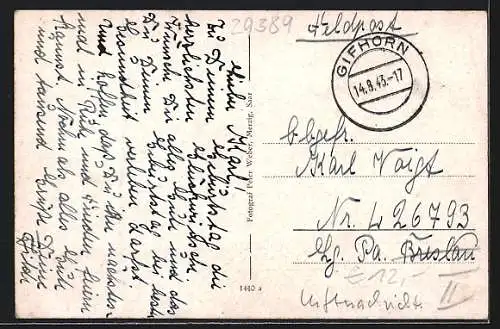 29389
Feldpost
GIFHORN
14.9.43.-17
Lieber Karl!
Zu Deinem Geburtstag die
herzlichsten Glückwünsche
wünscht Dir alles Gute und das
Du Deinen Geburtstag bei bester
Gesundheit verleben darfst.
und hoffen, daß Du den nächsten
mal in Ruh und Frieden feiern
kannst. Nochmals alles Gute
und tausend Grüße Deine
Fotograf Peter Weber, Merzig, Saar
1440 a
Obgefr.
Karl Voigt
Nr. 426793
Lg. Pa. Breslau
£ 12,
Luftnachricht. II